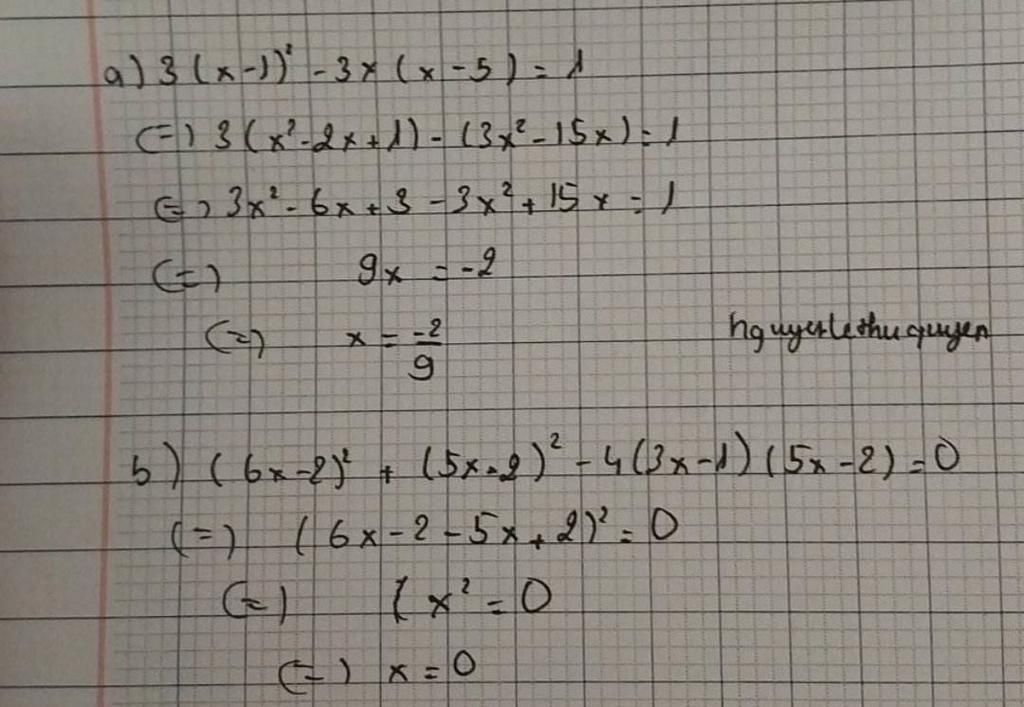 a) 3(x-1)² - 3x(x-5) = 1
(=) 3(x²-2x+1) - (3x²-15x) = 1
(=) 3x² - 6x + 3 - 3x² + 15x = 1
(=) 9x = -2
(=) x = -2/9
nguyenlethuquyen
b) (6x-2)² + (5x-2)² - 4(3x-1)(5x-2) = 0
(=) (6x-2-5x+2)² = 0
(=) x² = 0
(=) x = 0